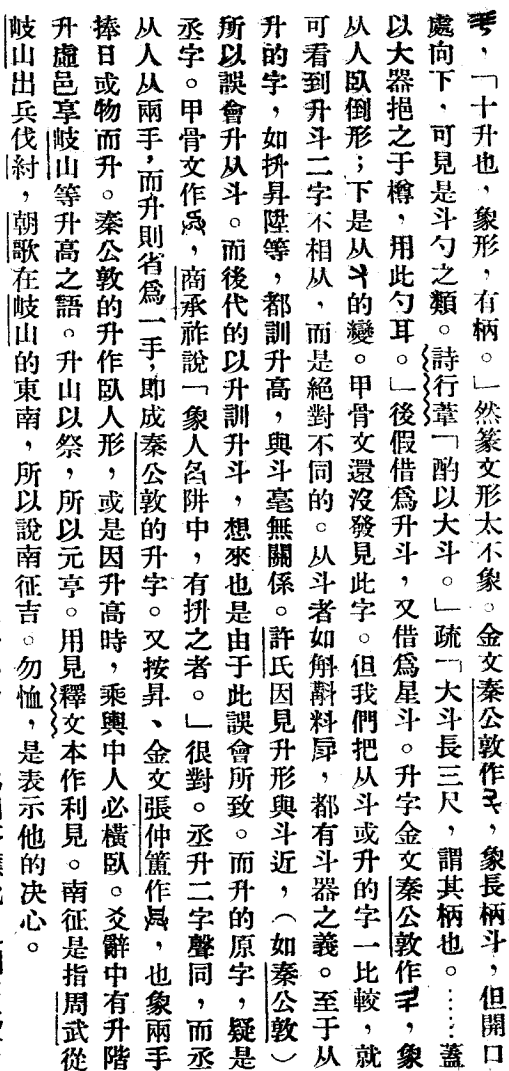 ，「十升也，象形，有柄。」然篆文形太不象。金文秦公敦作，象長柄斗，但開口
處向下，可見是斗勺之類。詩行葦「酌以大斗。」疏「大斗長三尺，謂其柄也。……蓋
以大器挹之于樽，用此勺耳。」後假借爲升斗，又借爲星斗。升字金文秦公敦作，象
从人臥倒形；下是从的變。甲骨文還沒發見此字。但我們把从斗或升的字一比較，就
可看到升斗二字不相从，而是絕對不同的。从斗者如斛斠料，都有斗器之義。至于从
升的字，如抍昇陞等，都訓升高，與斗毫無關係。許氏因見升形與斗近，（如秦公敦）
所以誤會升从斗。而後代的以升訓升斗，想來也是由于此誤會所致。而升的原字，疑是
丞字。甲骨文作，商承祚說「象人臽阱中，有抍之者。」很對。丞升二字聲同，而丞
从人从兩手，而升則省爲一手，即成秦公敦的升字。又按昇、金文張仲簠作，也象兩手
捧日或物而升。秦公敦的升作臥人形，或是因升高時，乘輿中人必橫臥。爻辭中有升階
升虛邑享岐山等升高之語。升山以祭，所以元亨。用見釋文本作利見。南征是指周武從
岐山出兵伐紂，朝歌在岐山的東南，所以說南征吉。勿恤，是表示他的決心。